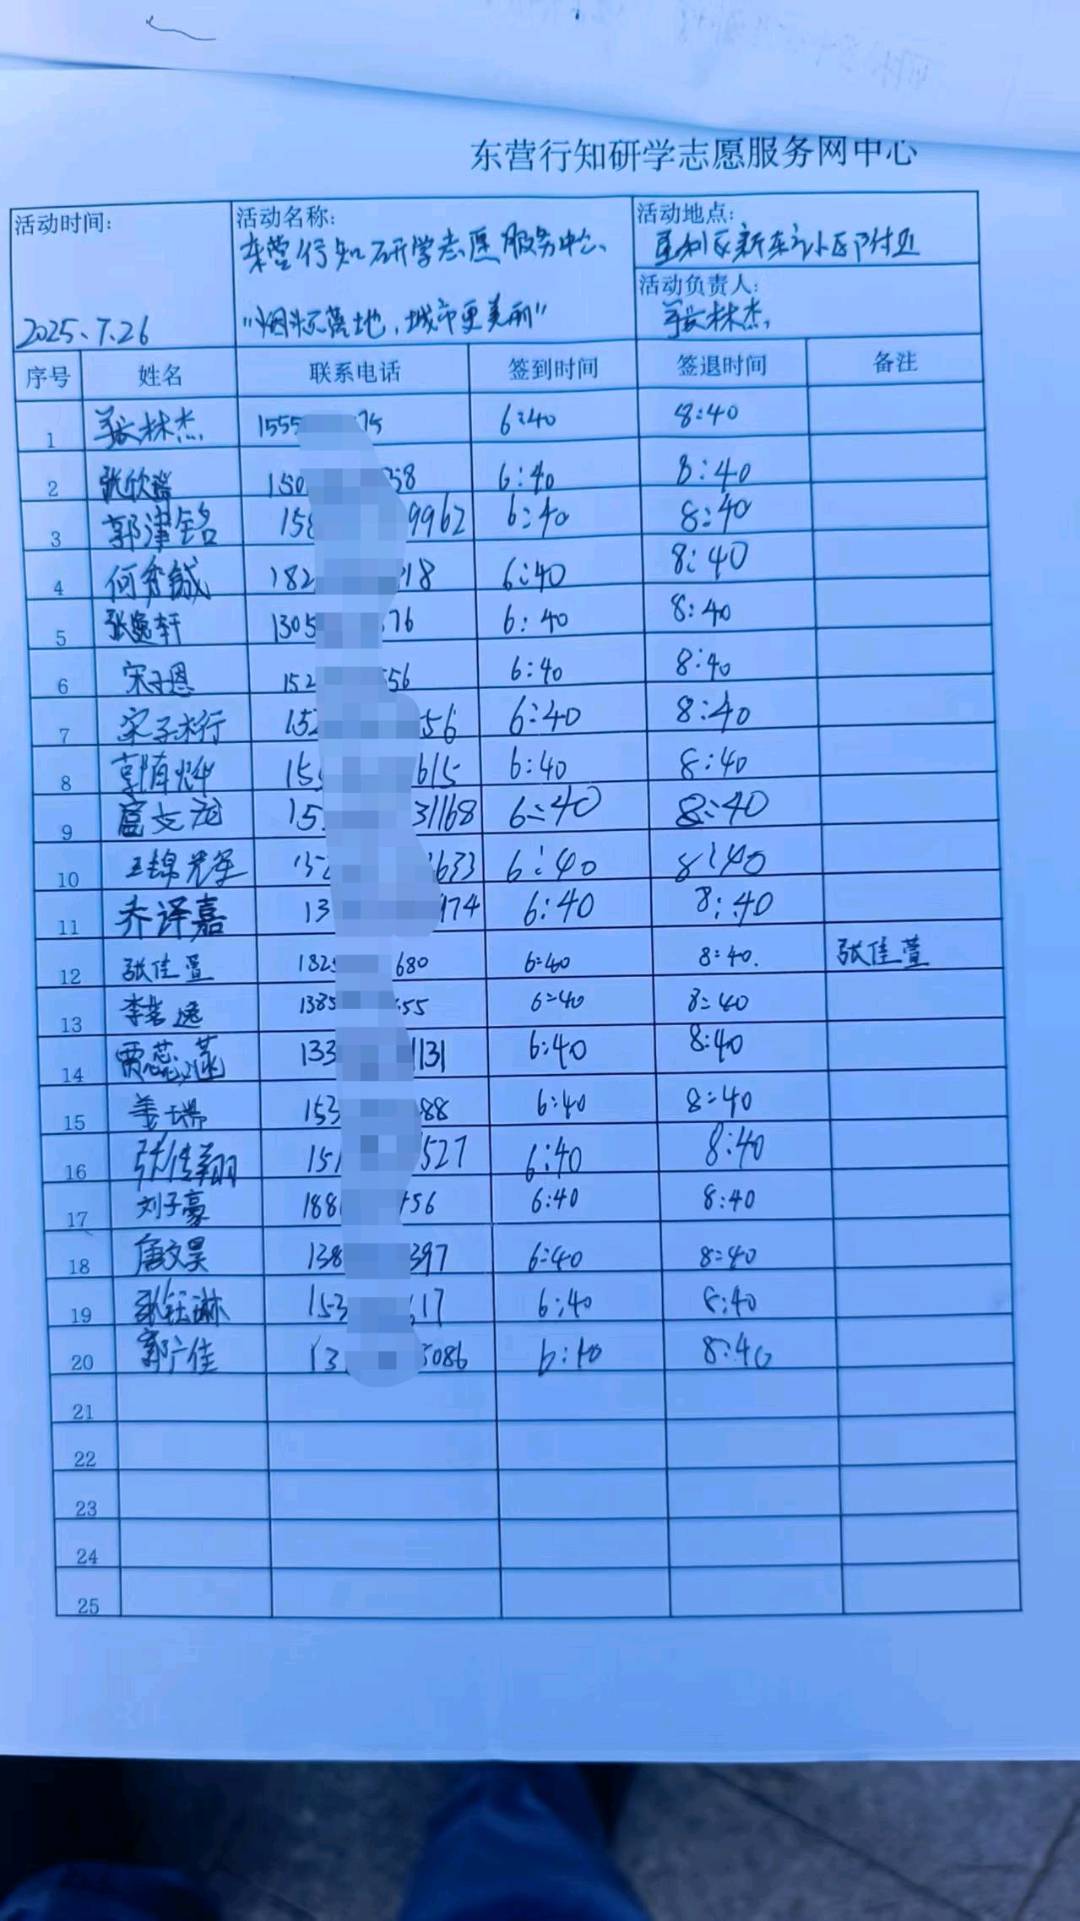 东营行知研学志愿服务网中心
活动时间: 2025.7.26
活动名称: 东营行知研学志愿服务中心 "烟头不落地,城市更美丽"
活动地点: 垦利区新东方小区附近
活动负责人: 张林杰
序号 姓名 联系电话 签到时间 签退时间 备注
1 张林杰 1555 75 6:40 8:40
2 张欣瑞 150 58 6:40 8:40
3 郭津铭 158 9962 6:40 8:40
4 何秀铖 182 18 6:40 8:40
5 张逸轩 1305 76 6:40 8:40
6 宋子恩 152 56 6:40 8:40
7 宋子行 152 56 6:40 8:40
8 郭 615 6:40 8:40
9 文龙 15 31168 6:40 8:40
10 王锦 633 6:40 8:40
11 乔译嘉 13 974 6:40 8:40
12 张佳萱 182 680 6:40 8:40. 张佳萱
13 李 逸 1385 55 6:40 8:40
14 贾蕊涵 133 1131 6:40 8:40
15 姜瑞 153 88 6:40 8:40
16 张佳翔 151 527 6:40 8:40
17 刘子豪 188 56 6:40 8:40
18 唐文昊 138 397 6:40 8:40
19 张钰琳 153 17 6:40 8:40
20 郭广佳 13 5086 6:40 8:40
21
22
23
24
25